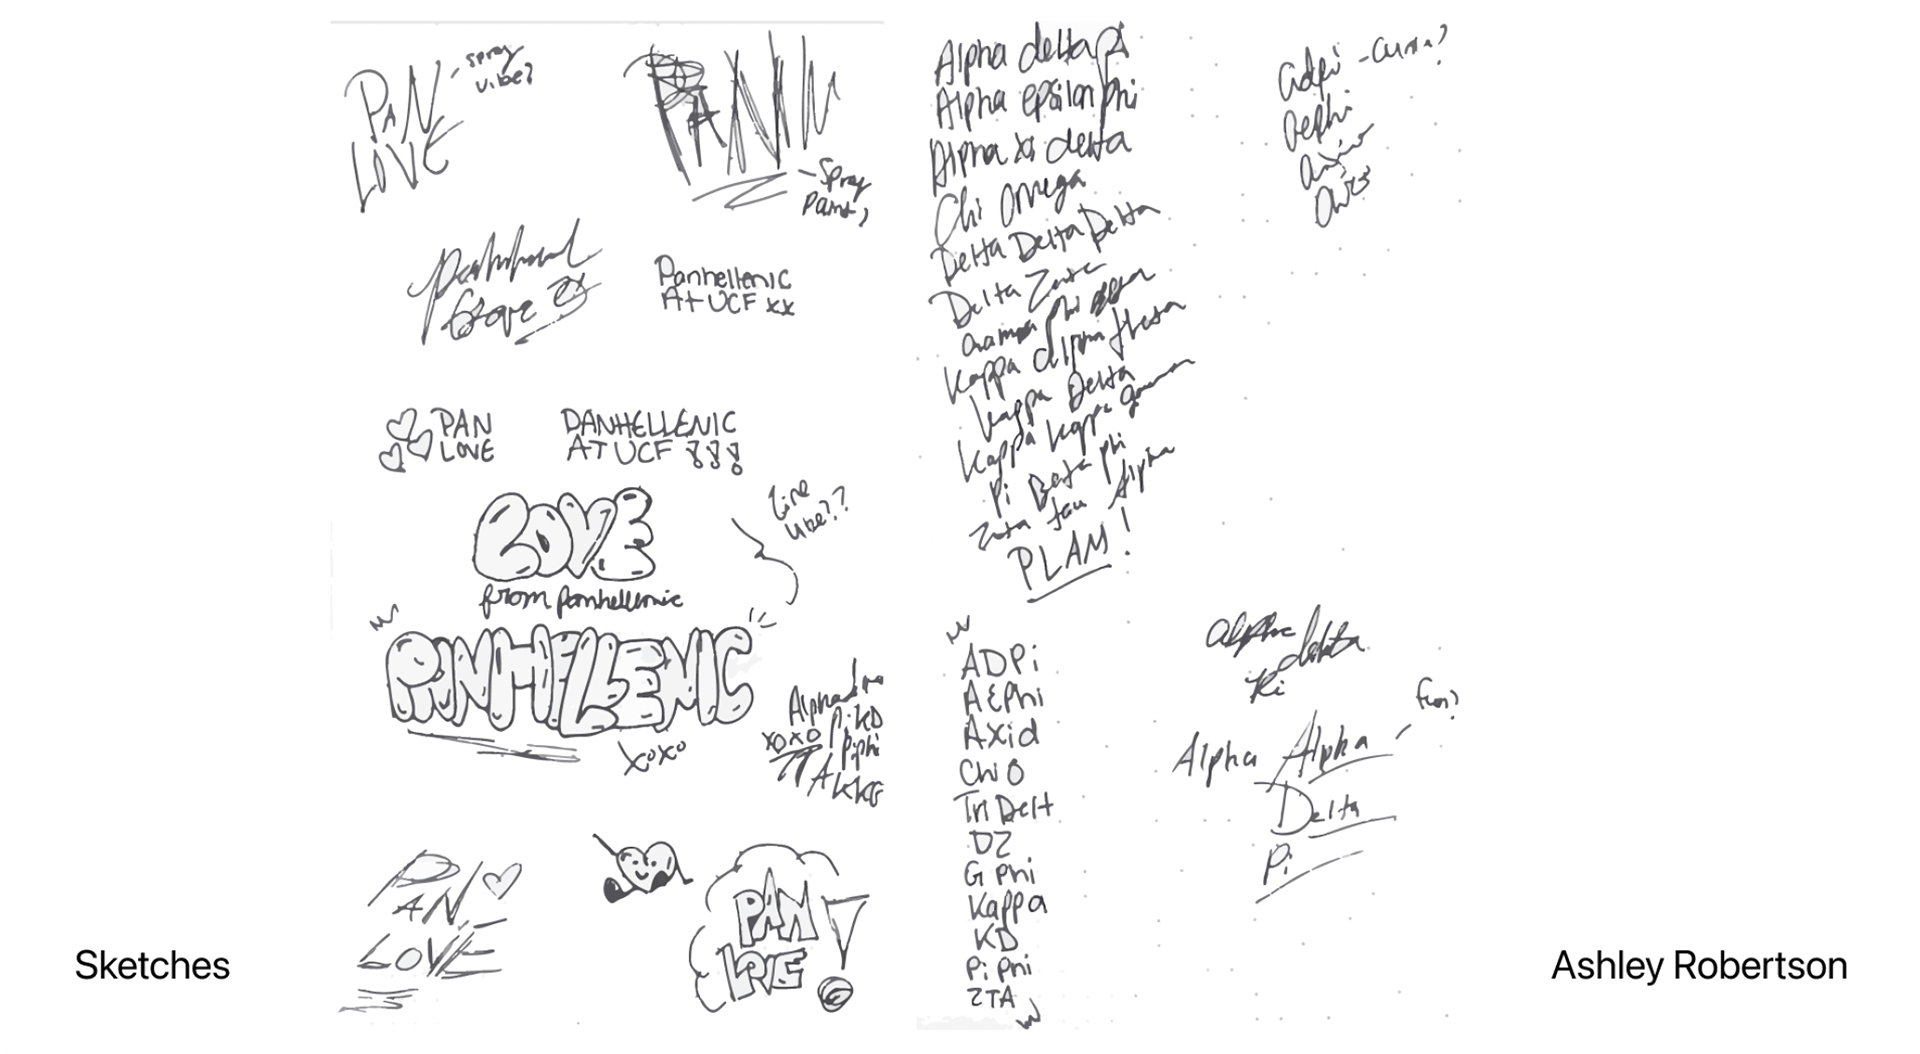 PAN
LOVE
- spray
vibe?
PAN
- Spray
Paint?
Love
Panhellenic
At UCF xx
PAN
LOVE
PANHELLENIC
AT UCF !!!
LOVE
from panhellenic
Line
vibe??
PANHELLENIC
xoxo
Alpha
Pi KD
xoxo Piphi
KKG
PAN
LOVE
PAN
LOVE!
Alpha delta pi
Alpha epsilon phi
Alpha xi delta
Chi Omega
Delta Delta Delta
Delta Zeta
Gamma phi Beta
Kappa alpha theta
Kappa Delta
Kappa Kappa gamma
Pi Beta phi
Zeta tau Alpha
PLAM!
adpi
aephi
axid
ADPi
AEPhi
Axid
Chi O
Tri Delt
DZ
G Phi
Kappa
KD
Pi Phi
ZTA
alpha
delta
Pi
Alpha Alpha - fun?
Delta
Pi
Sketches
Ashley Robertson